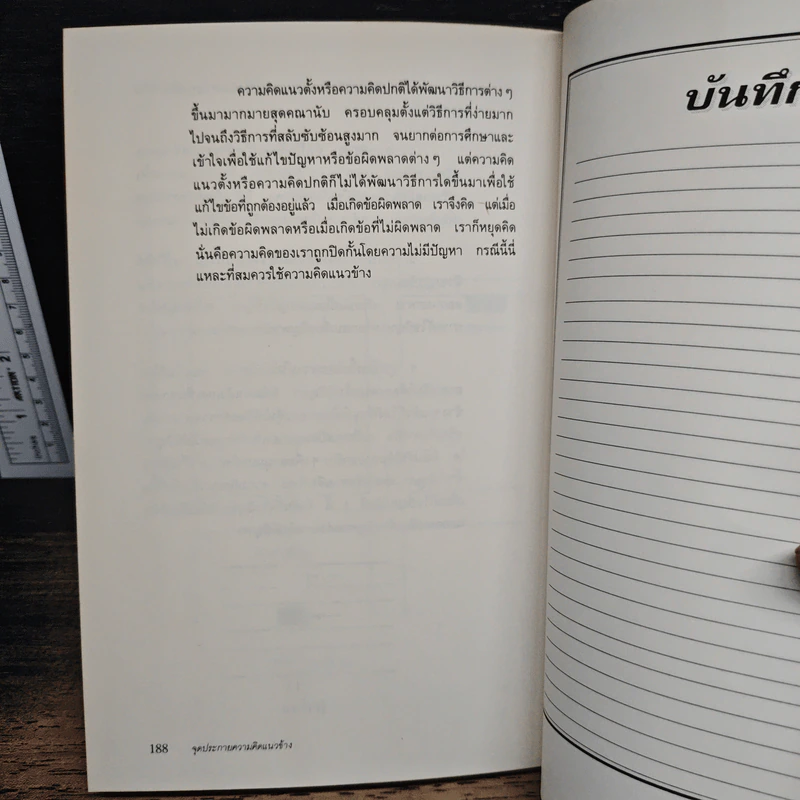 ความคิดแนวตั้งหรือความคิดปกติได้พัฒนาวิธีการต่าง ๆ
ขึ้นมามากมายสุดคณานับ ครอบคลุมตั้งแต่วิธีการที่ง่ายมาก
ไปจนถึงวิธีการที่สลับซับซ้อนสูงมาก จนยากต่อการศึกษาและ
เข้าใจเพื่อใช้แก้ไขปัญหาหรือข้อผิดพลาดต่าง ๆ แต่ความคิด
แนวตั้งหรือความคิดปกติก็ไม่ได้พัฒนาวิธีการใดขึ้นมาเพื่อใช้
แก้ไขข้อที่ถูกต้องอยู่แล้ว เมื่อเกิดข้อผิดพลาด เราจึงคิด แต่เมื่อ
ไม่เกิดข้อผิดพลาดหรือเมื่อเกิดข้อที่ไม่ผิดพลาด เราก็หยุดคิด
นั่นคือความคิดของเราถูกปิดกั้นโดยความไม่มีปัญหา กรณีนี้นี่
แหละที่สมควรใช้ความคิดแนวข้าง
188 จุดประกายความคิดแนวข้าง
บันทึก